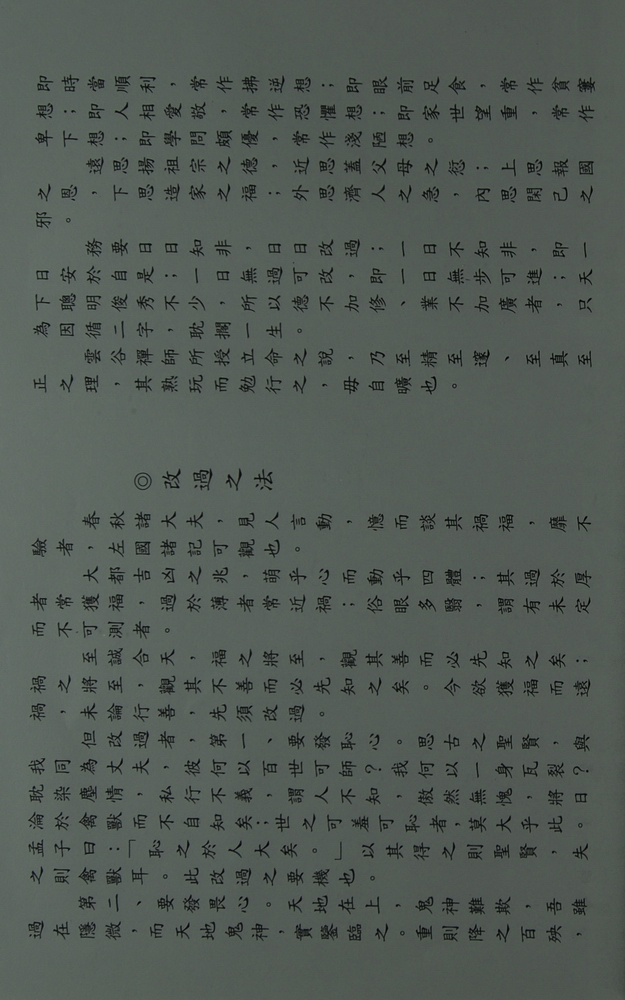 即時當順利，常作拂逆想；即眼前足食，常作貧窶
想；即人相愛敬，常作恐懼想；即家世望重，常作
卑下想；即學問頗優，常作淺陋想。
遠思揚祖宗之德，近思蓋父母之愆；上思報國
之恩，下思造家之福；外思濟人之急，內思閑己之
邪。
務要日日知非，日日改過；一日不知非，即一
日安於自是；一日無過可改，即一日無步可進；天
下聰明俊秀不少，所以德不加修、業不加廣者，只
為因循二字，耽擱一生。
雲谷禪師所授立命之說，乃至精至邃、至真至
正之理，其熟玩而勉行之，毋自曠也。
◎改過之法
春秋諸大夫，見人言動，憶而談其禍福，靡不
驗者，左國諸記可觀也。
大都吉凶之兆，萌乎心而動乎四體；其過於厚
者常獲福，過於薄者常近禍；俗眼多翳，謂有未定
而不可測者。
至誠合天，福之將至，觀其善而必先知之矣；
禍之將至，觀其不善而必先知之矣。今欲獲福而遠
禍，未論行善，先須改過。
但改過者，第一、要發恥心。思古之聖賢，與
我同為丈夫，彼何以百世可師？我何以一身瓦裂？
耽染塵情，私行不義，謂人不知，傲然無愧，將日
淪於禽獸而不自知矣；世之可羞可恥者，莫大乎此。
孟子曰：「恥之於人大矣。」以其得之則聖賢，失
之則禽獸耳。此改過之要機也。
第二、要發畏心。天地在上，鬼神難欺，吾雖
過在隱微，而天地鬼神，實鑒臨之。重則降之百殃，